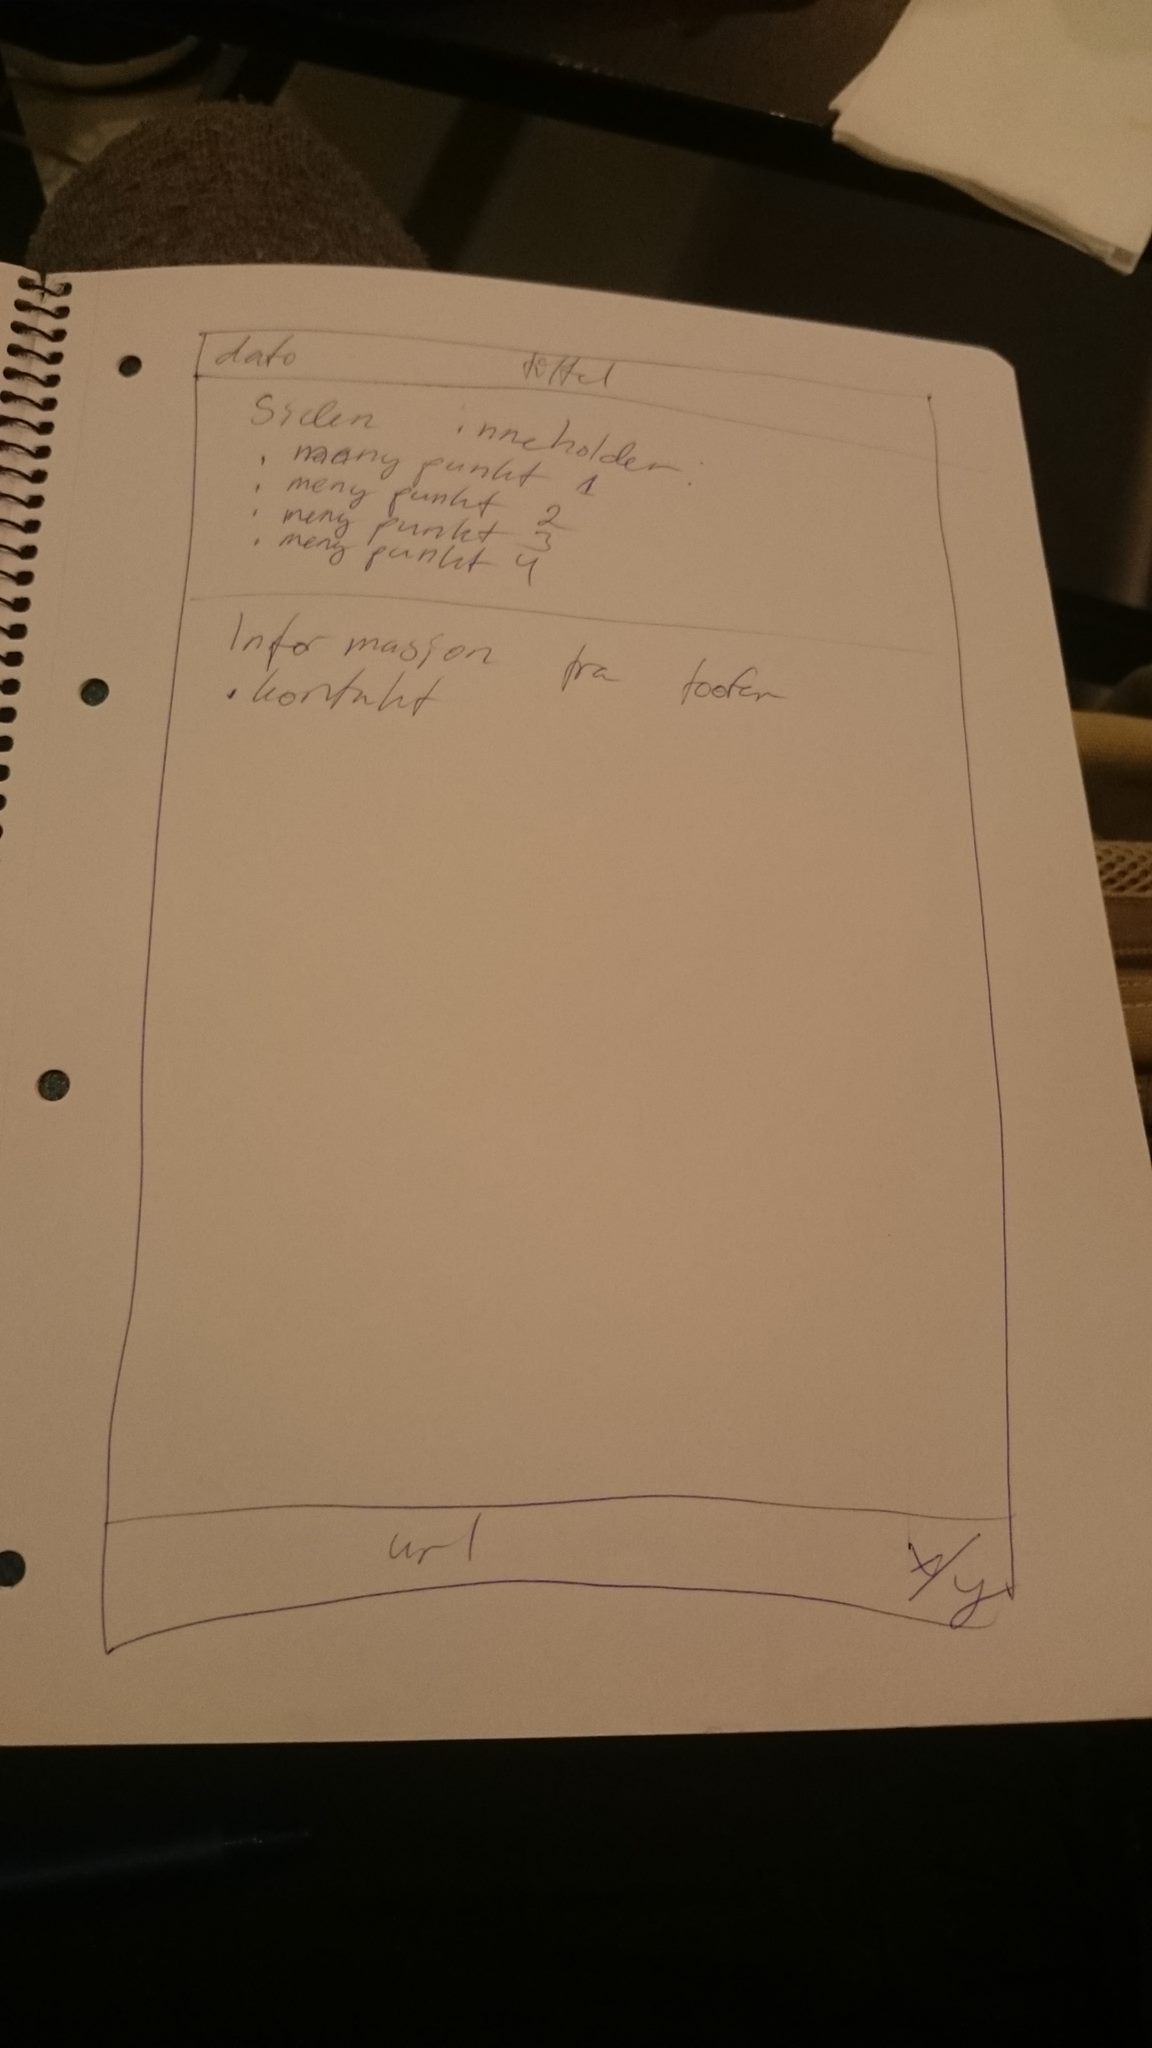 dato tittel
Siden inneholder:
. meny punkt 1
. meny punkt 2
. meny punkt 3
. meny punkt 4
Informasjon fra footer
. kontakt
url x/y